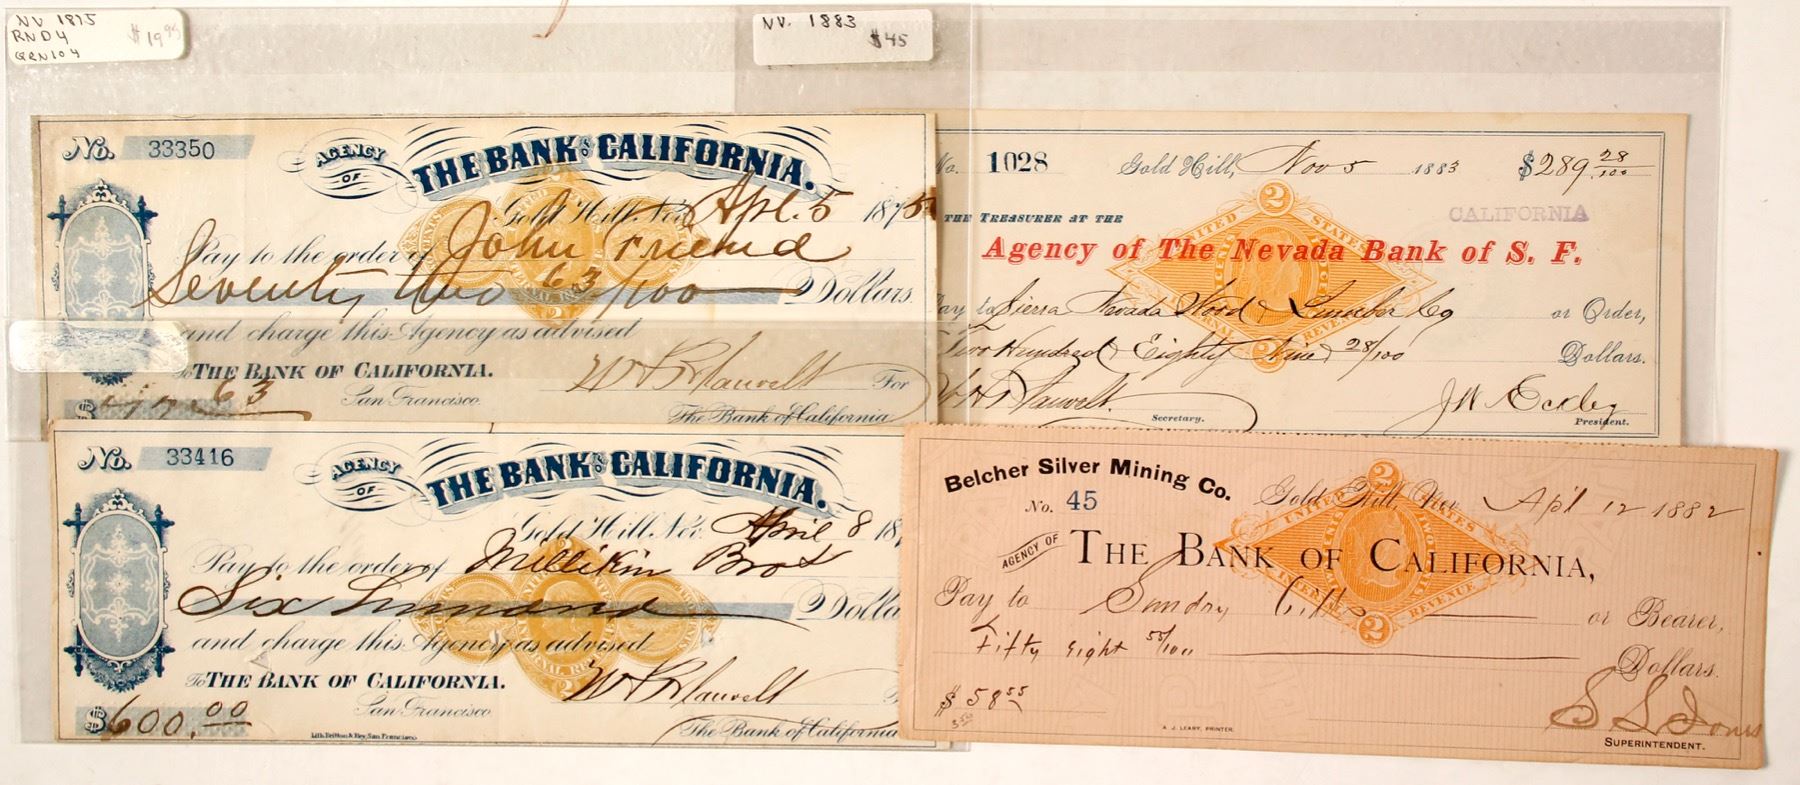 NV 1875
RND4 $19.95
QRN104
NV. 1883
$45
No. 33350
AGENCY OF THE BANK OF CALIFORNIA.
Gold Hill, Nev. Apl. 5 1875
Pay to the order of John Friend
Seventy two 63/100 Dollars
and charge this Agency as advised
To THE BANK OF CALIFORNIA.
San Francisco. For
$ 72.63 The Bank of California
No. 1028 Gold Hill, Nov 5 1883 $289 28/100
THE TREASURER AT THE CALIFORNIA
Agency of The Nevada Bank of S. F.
UNITED STATES INTERNAL REVENUE 2
Pay to Sierra Nevada Wood & Lumber Co or Order,
Two Hundred Eighty Nine 28/100 Dollars.
Secretary. President.
No. 33416
AGENCY OF THE BANK OF CALIFORNIA.
Gold Hill, Nev. April 8 18
Pay to the order of Millikin Bros
Six hundred Dolla
and charge this Agency as advised
To THE BANK OF CALIFORNIA.
San Francisco
$600.00 The Bank of California
Lith. Britton & Rey, San Francisco
Belcher Silver Mining Co.
No. 45 Gold Hill, Nev Apl 12 1882
AGENCY OF THE BANK OF CALIFORNIA,
UNITED STATES INTERNAL REVENUE 2
Pay to Sundry or Bearer,
Fifty eight 55/100 Dollars.
$58 55
S L Jones
A. J. LEARY, PRINTER. SUPERINTENDENT.